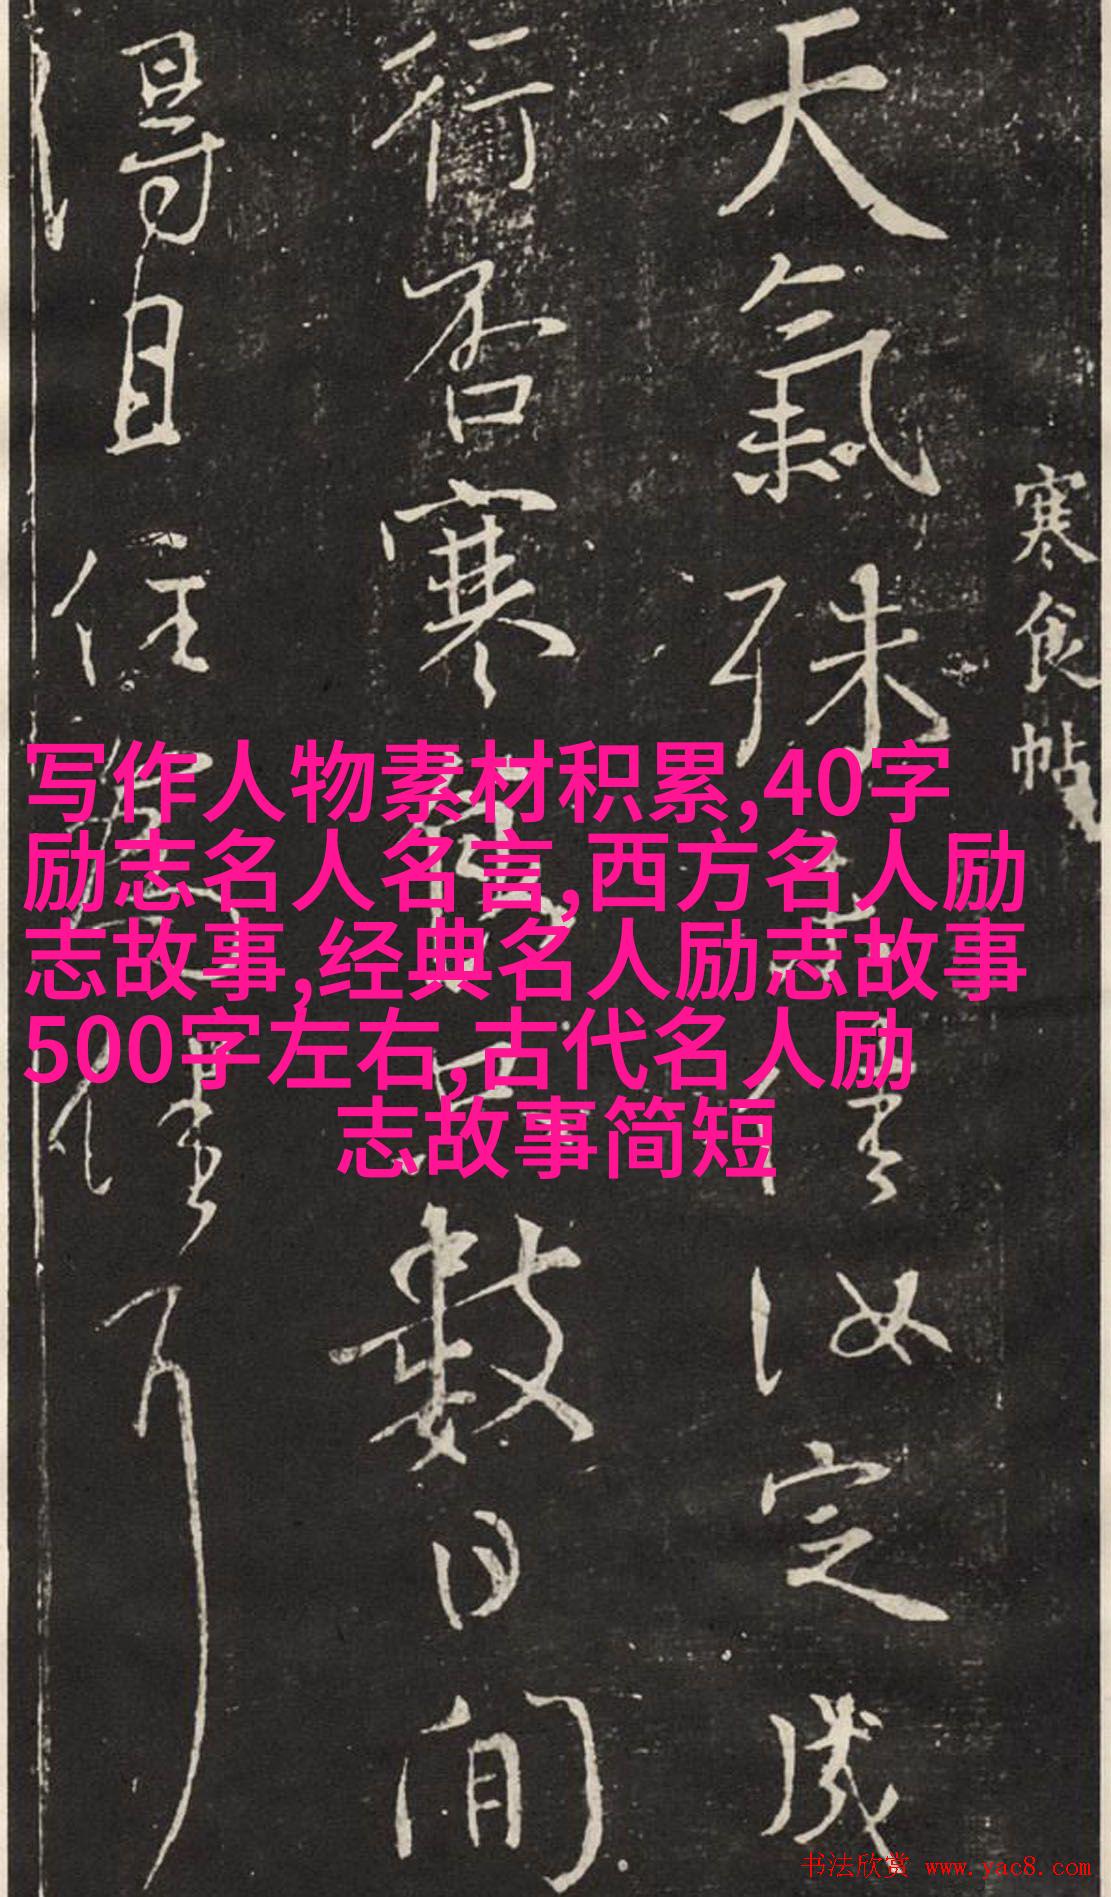 寒食帖
天氣殊未佳汝定成
行否寒食只數日間
得且住為佳耳
写作人物素材积累,40字
励志名人名言,西方名人励
志故事,经典名人励志故事
500字左右,古代名人励
志故事简短
书法欣赏 www.yac8.com